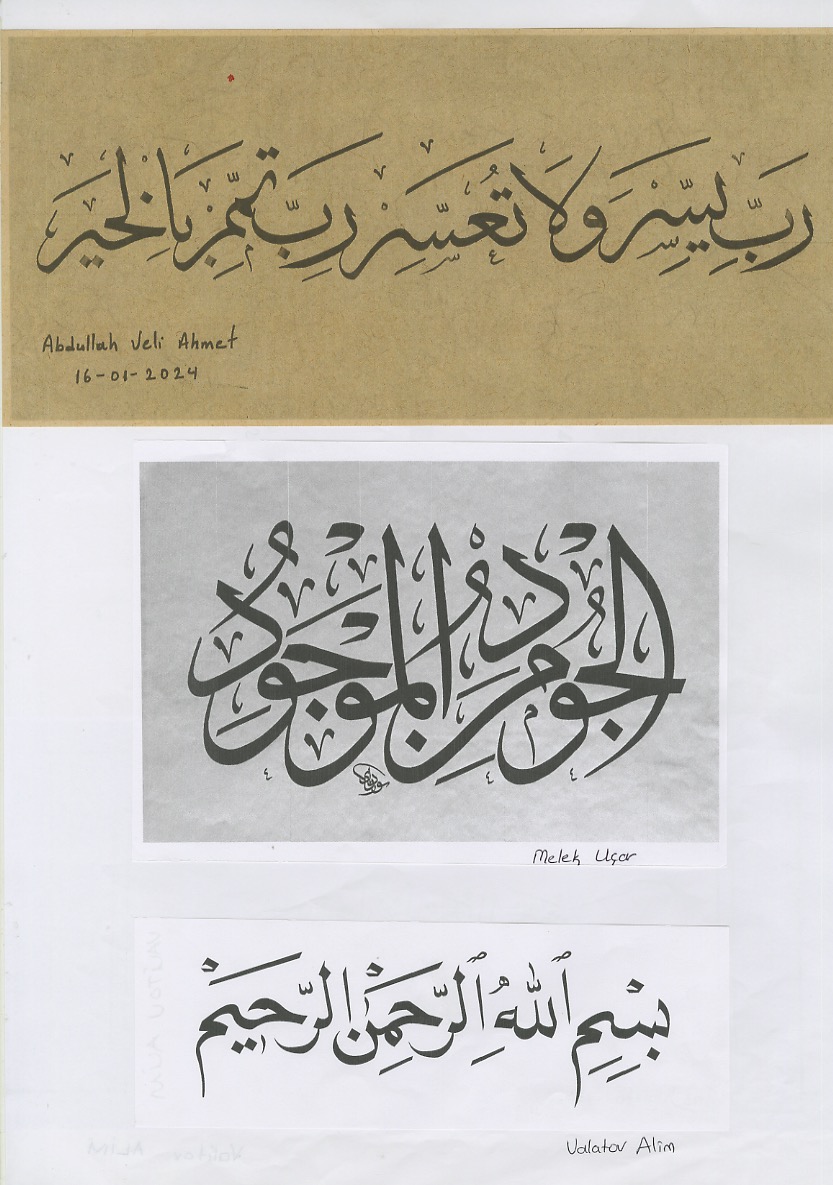 رَبِّ يَسِّرْ وَلَا تُعَسِّرْ رَبِّ تَمِّمْ بِالْخَيْرِ
Abdullah Veli Ahmet
16-01-2024
الجود من الموجود
Melek Uçar
بِسْمِ اللهِ الرَّحْمٰنِ الرَّحِيمِ
Valatov Alim